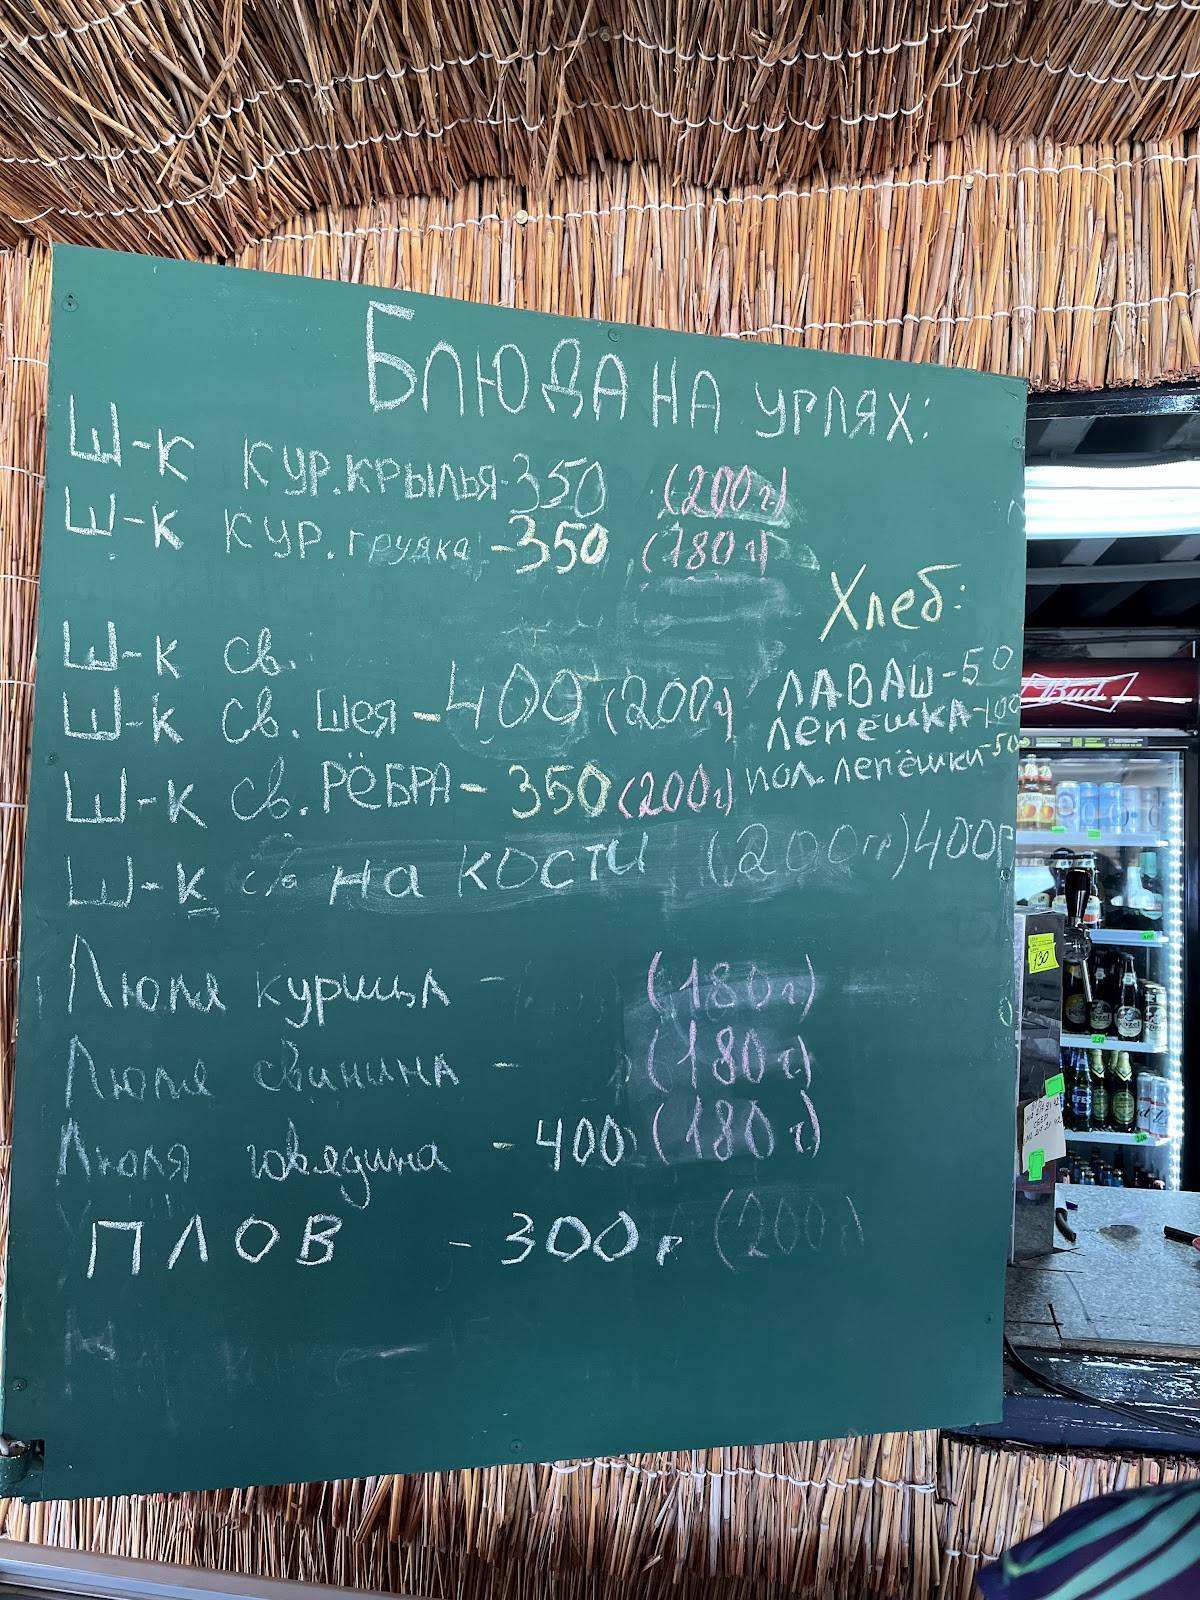 Блюда на углях:
Ш-к кур. крылья - 350 (200 г)
Ш-к кур. грудка - 350 (180 г)
Ш-к св.
Ш-к св. шея - 400 (200 г)
Ш-к св. рёбра - 350 (200 г)
Ш-к на кости (200 гр) 400р
Хлеб:
ЛАВАШ - 50
Лепёшка - 100
пол. лепёшки - 50
Люля курица - (180 г)
Люля свинина - (180 г)
Люля говядина - 400 (180 г)
ПЛОВ - 300 р (200 г)
Bud
130
Kozel
EFES